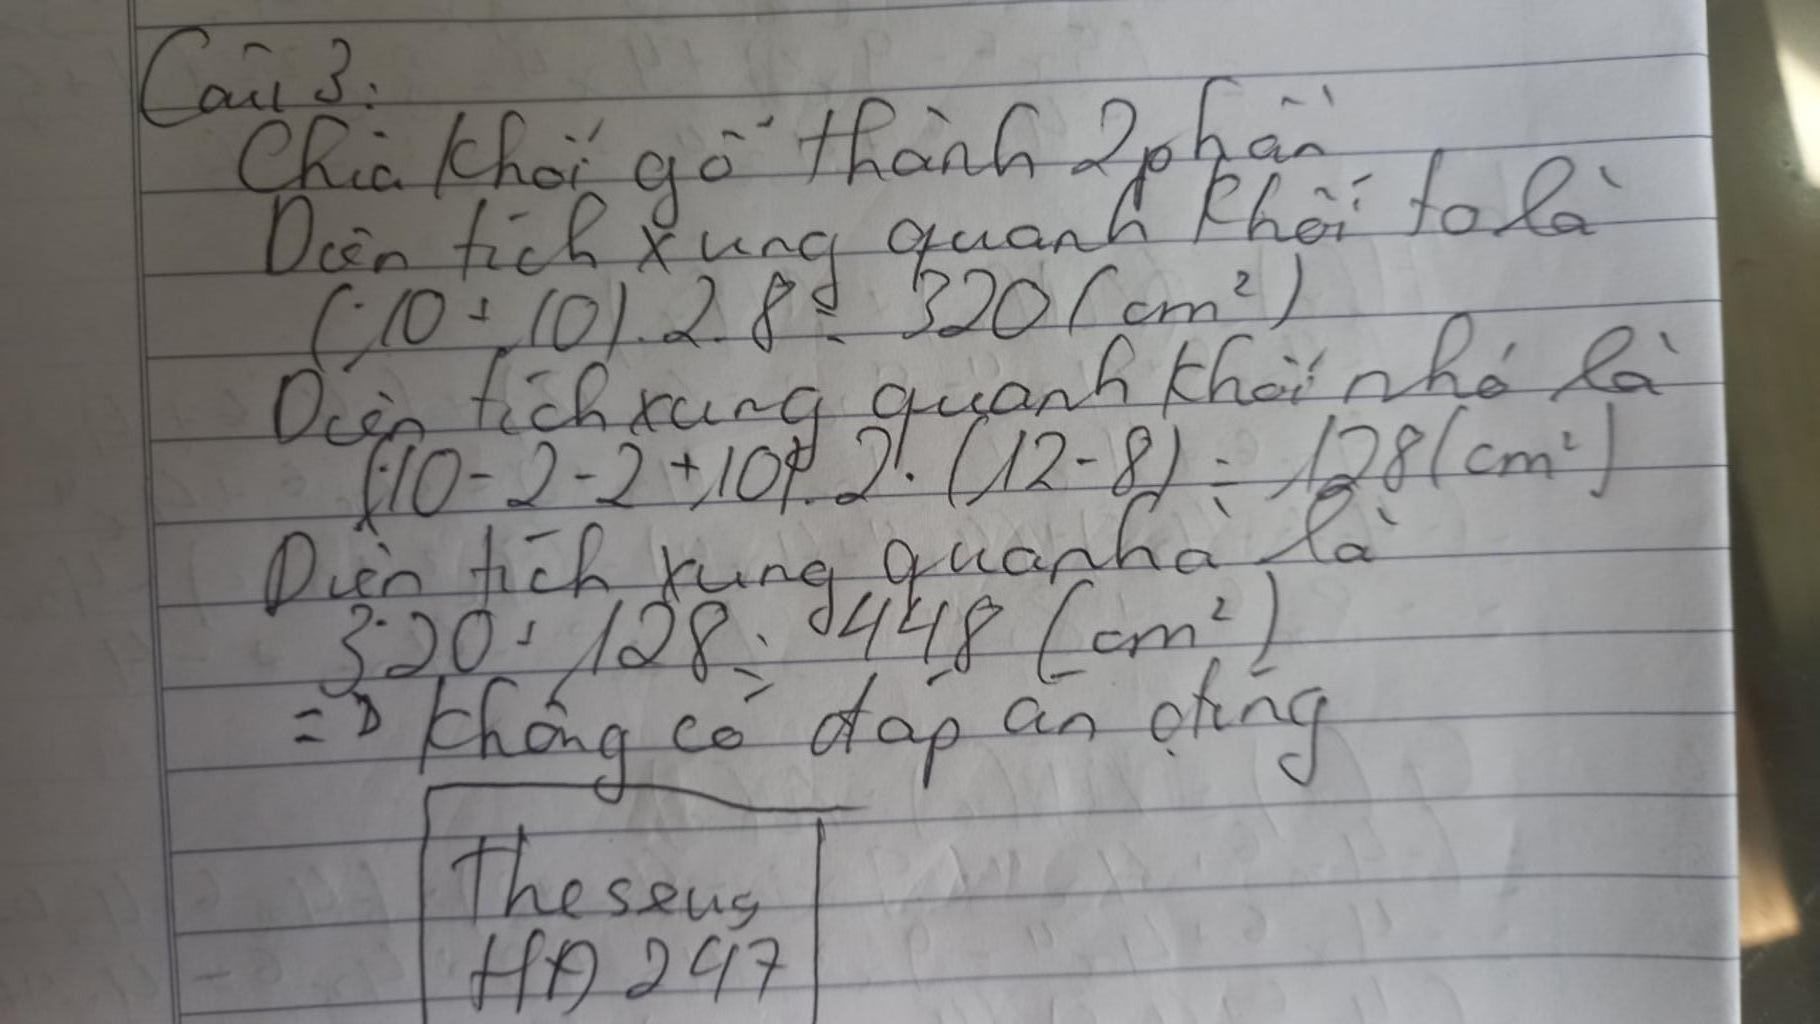 Câu 3:
Chia khối gỗ thành 2 phần
Diện tích xung quanh khối to là
(10 + 10) . 2 . 8 = 320 (cm²)
Diện tích xung quanh khối nhỏ là
(10 - 2 - 2 + 10) . 2 . (12 - 8) = 128 (cm²)
Diện tích xung quanh là
320 + 128 = 448 (cm²)
=> không có đáp án đúng
Theseus
HD 247